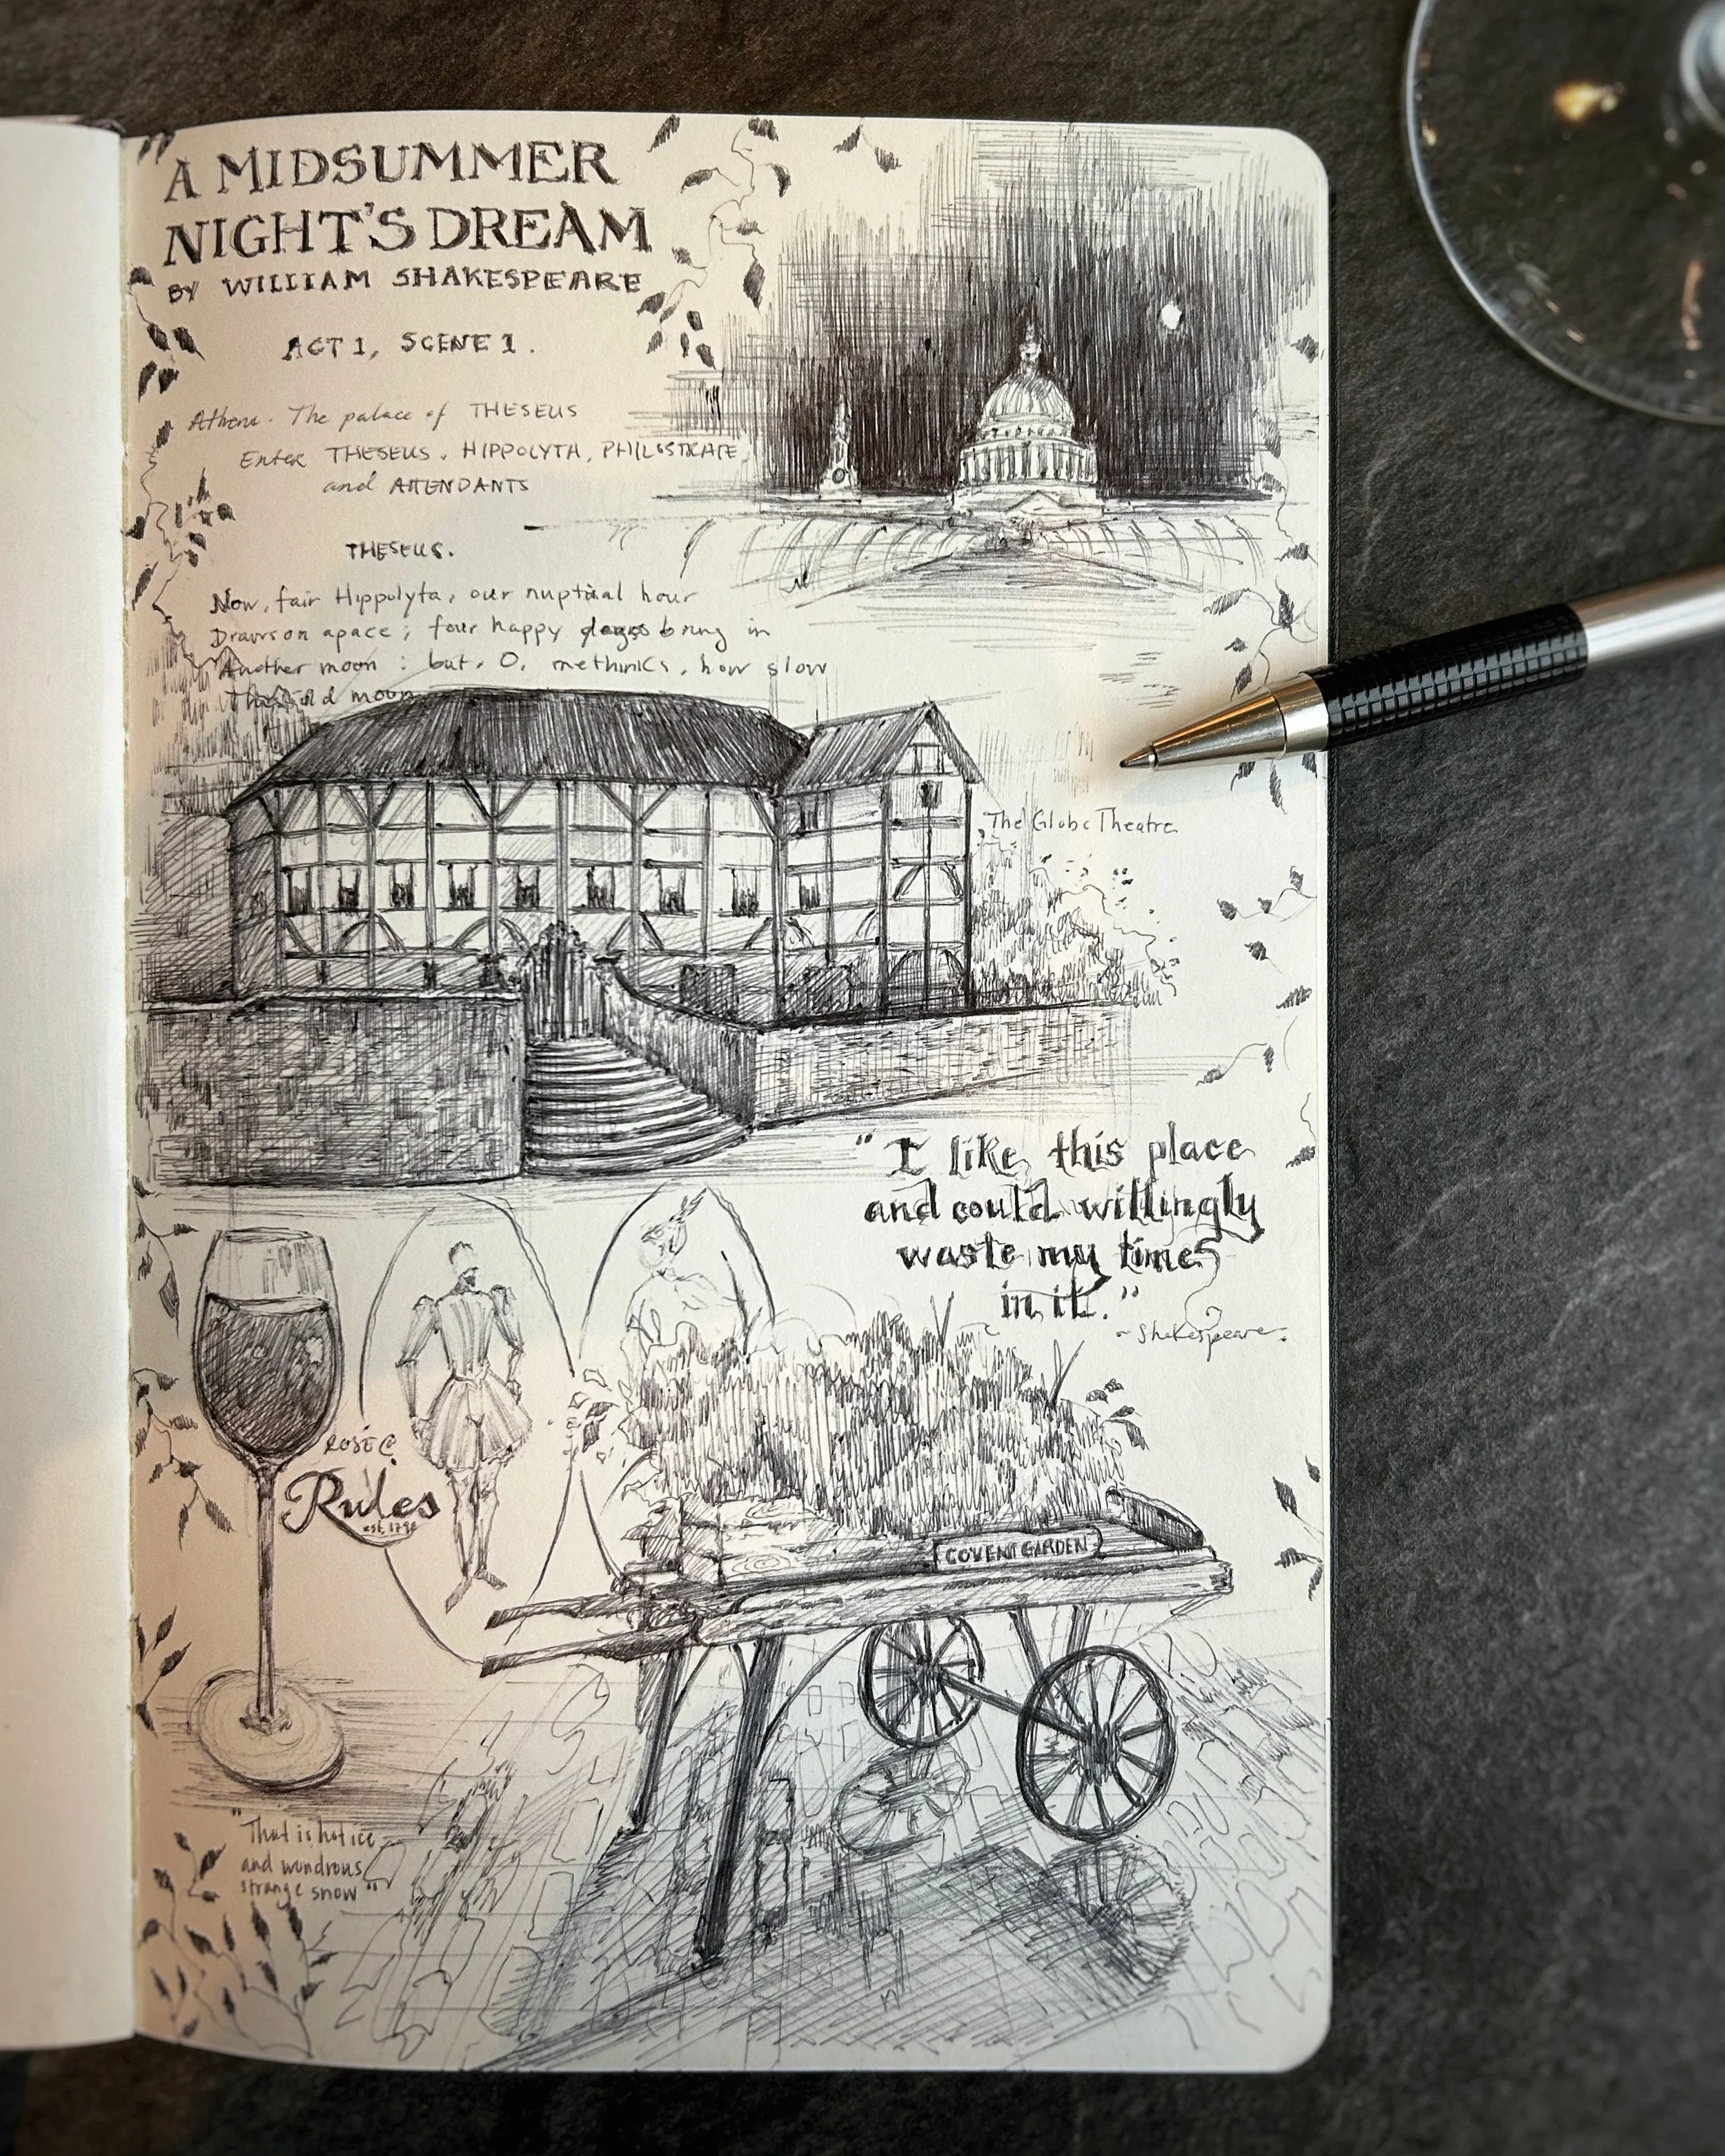 A MIDSUMMER
NIGHT'S DREAM
BY WILLIAM SHAKESPEARE
ACT 1, SCENE 1.
Athens. The palace of THESEUS
Enter THESEUS, HIPPOLYTA, PHILOSTRATE,
and ATTENDANTS
THESEUS.
Now, fair Hippolyta, our nuptial hour
Draws on apace; four happy days bring in
Another moon: but, O, methinks, how slow
This old moon
The Globe Theatre
"I like this place
and could willingly
waste my time
in it."
~Shakespeare
Rosé @
Rules
est. 1798
COVENT GARDEN
"That is hot ice
and wondrous
strange snow"